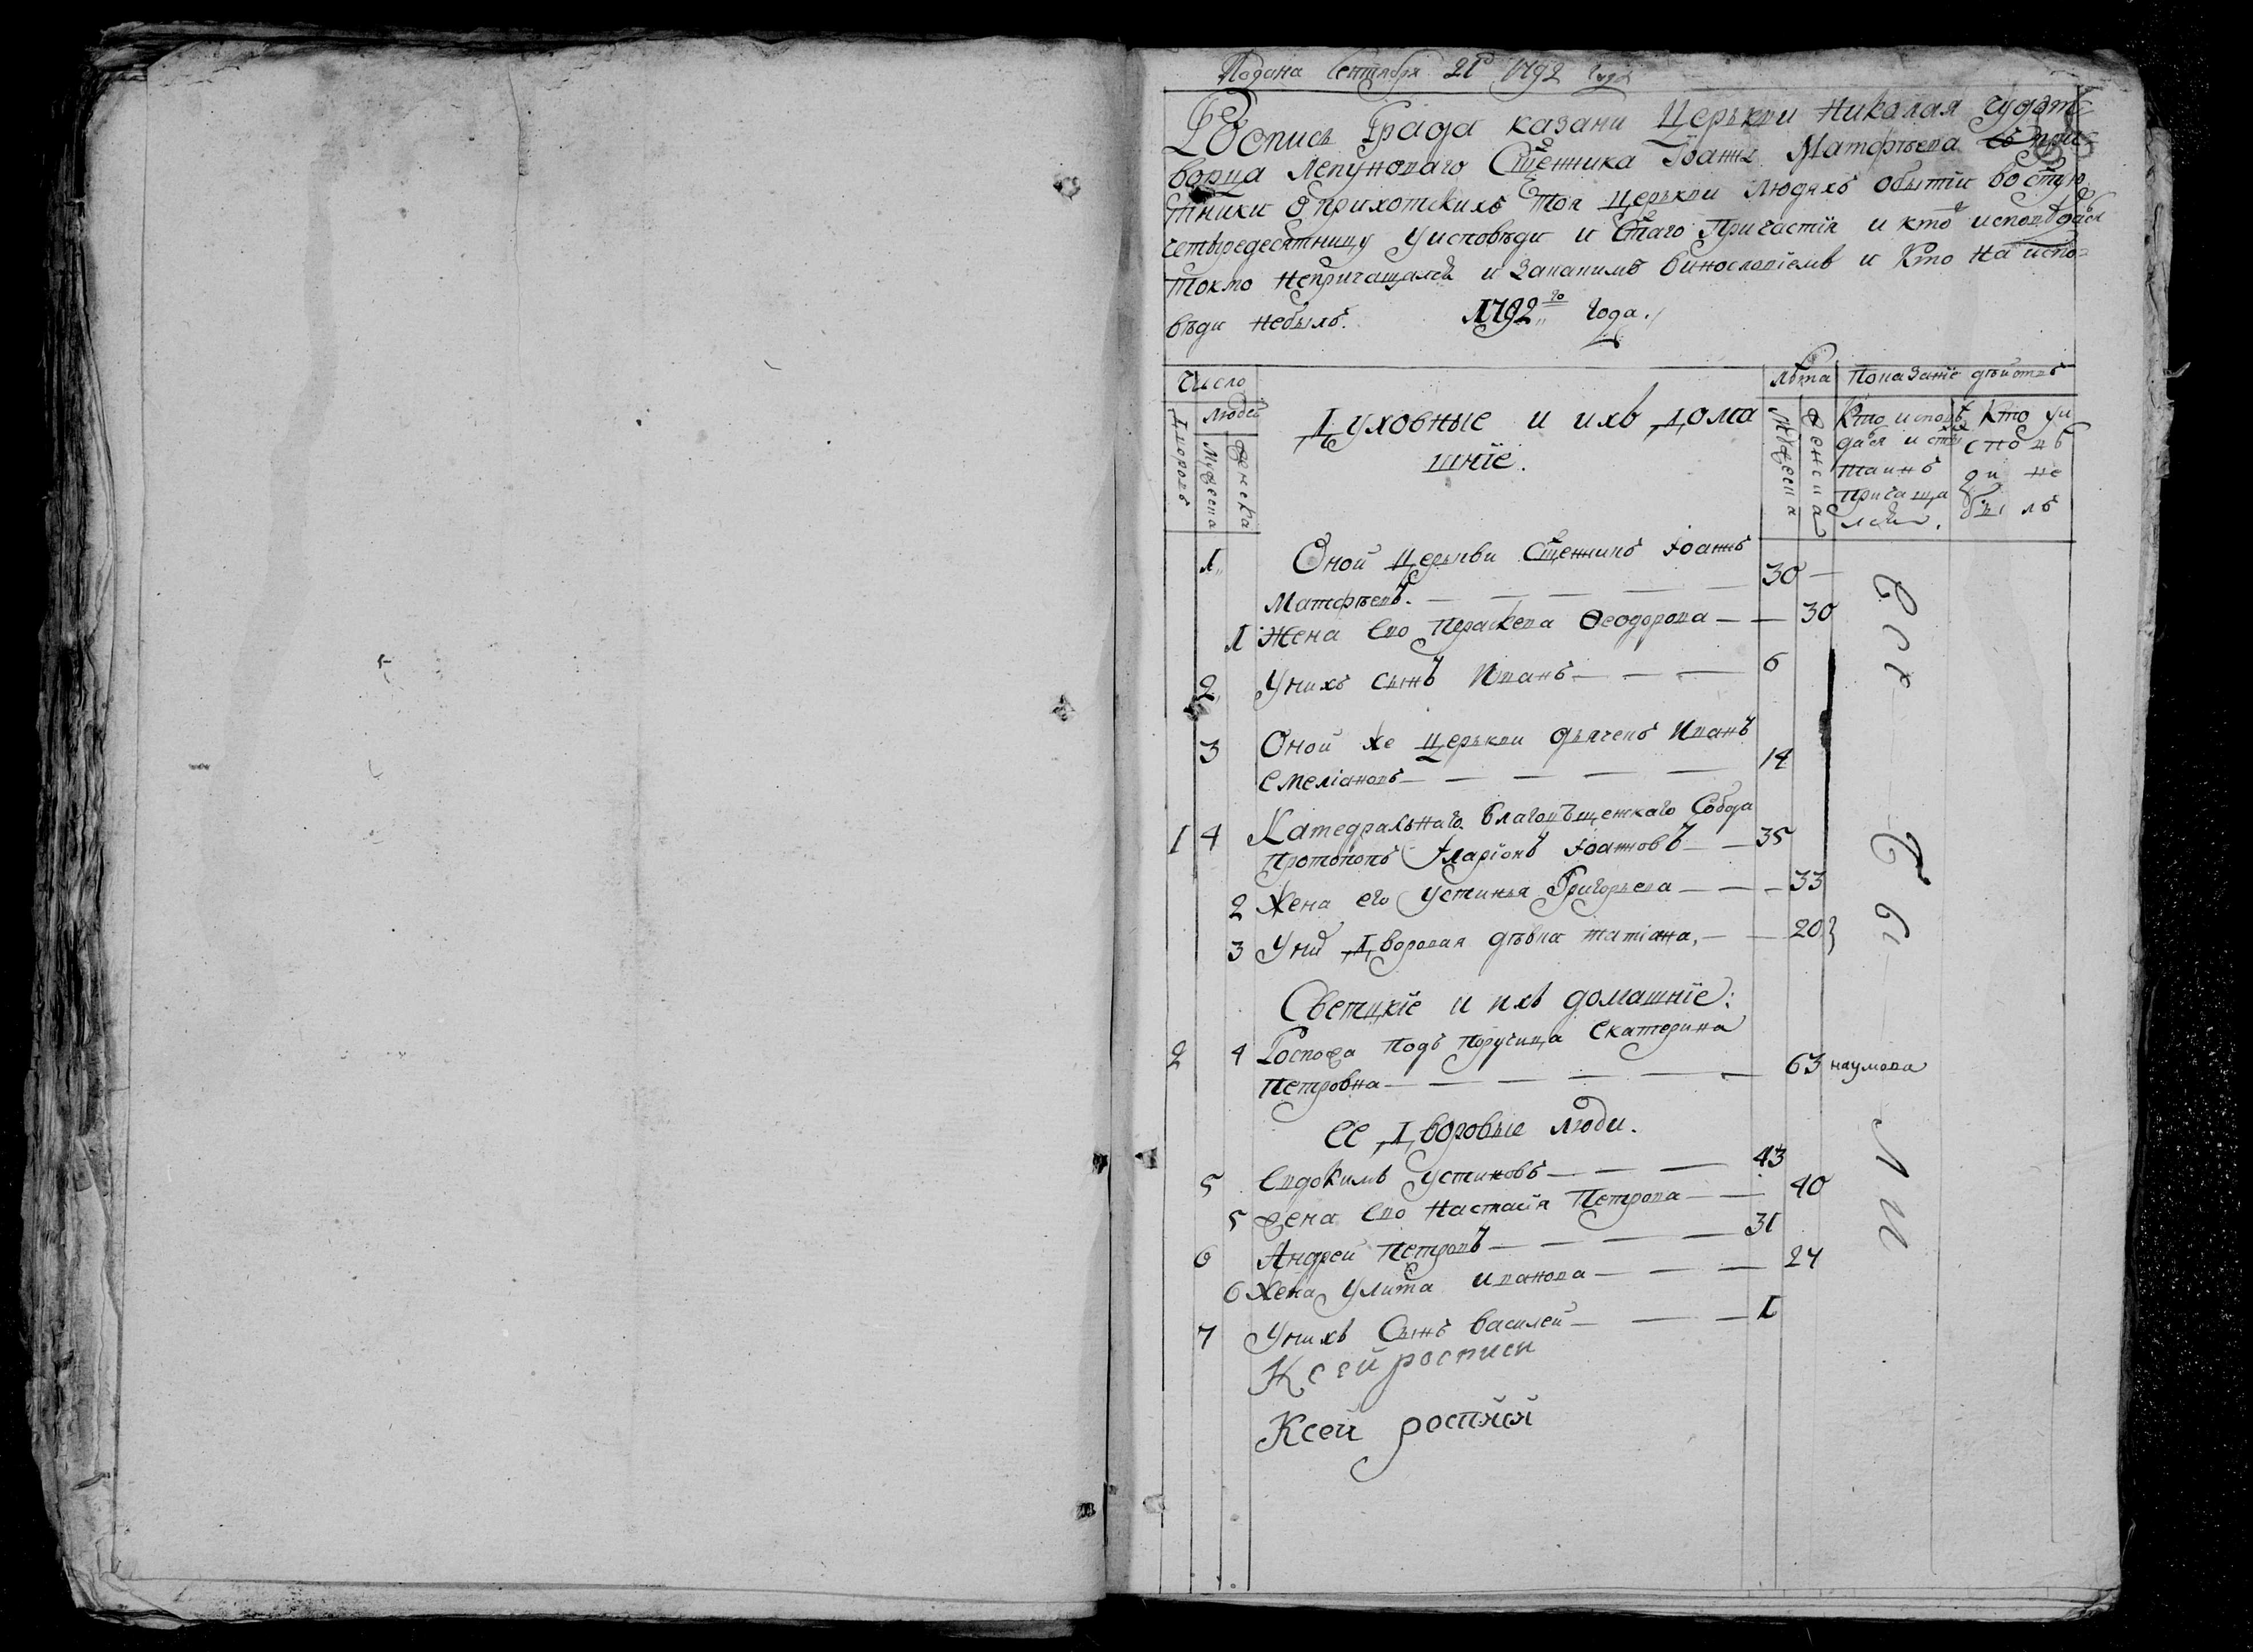 Подана Сентября 21г 1792 года
Роспись Града казани Церькви Николая чудот
ворца Ляпуноваго Сщенника Іоанна Матфѣева съ при-
тники о прихотскихъ Тоя церькви людяхъ обытіи во стую
четыредесятницу уисповѣди и стаго Причастія и кто исповѣдался
Токмо непричащался и Закакимъ винословіемъ и Кто на испо-
вѣди небылъ. 1792го Года.
Число
людей
Дворовъ
Мужеска
Женска
Духовные и ихъ дома
шніе.
Лѣта
Мужеска
Женска
Показаніе дѣйствъ
Кто исповѣ
дался и стыхъ
таинъ
Прича ща
лся.
Кто уи
спо вѣ
ди не
бы лъ
1 Оной церькви Сщенникъ Іоаннъ
Матфѣевъ. 30
1 Жена Ево Параскева Ѳеодорова 30
2 Унихъ сынъ Иванъ 6
3 Оной же церькви дьячекъ Иванъ
Емеліановъ 14
1 4 Катедральнаго Благовѣщенкаго Собора
Протопопъ Іларіонъ Іоанновъ 35
2 Жена его Устинья Григорьева 33
3 Унихъ Дворовая дѣвка татіана. 20
Светцкіе и ихъ домашніе:
2 4 Госпожа Подъ Поручица Екатерина
Петровна 63 наумова
ее Дворовые люди.
5 Евдокимъ Устиновъ 43
5 Жена Ево Настасія Петрова 40
6 Андреи Петровъ 31
6 Жена Улита иванова 24
7 Унихъ Сынъ василеи 1
К сеи росписи
Ксеи росписи
Всѣ
бы
ли